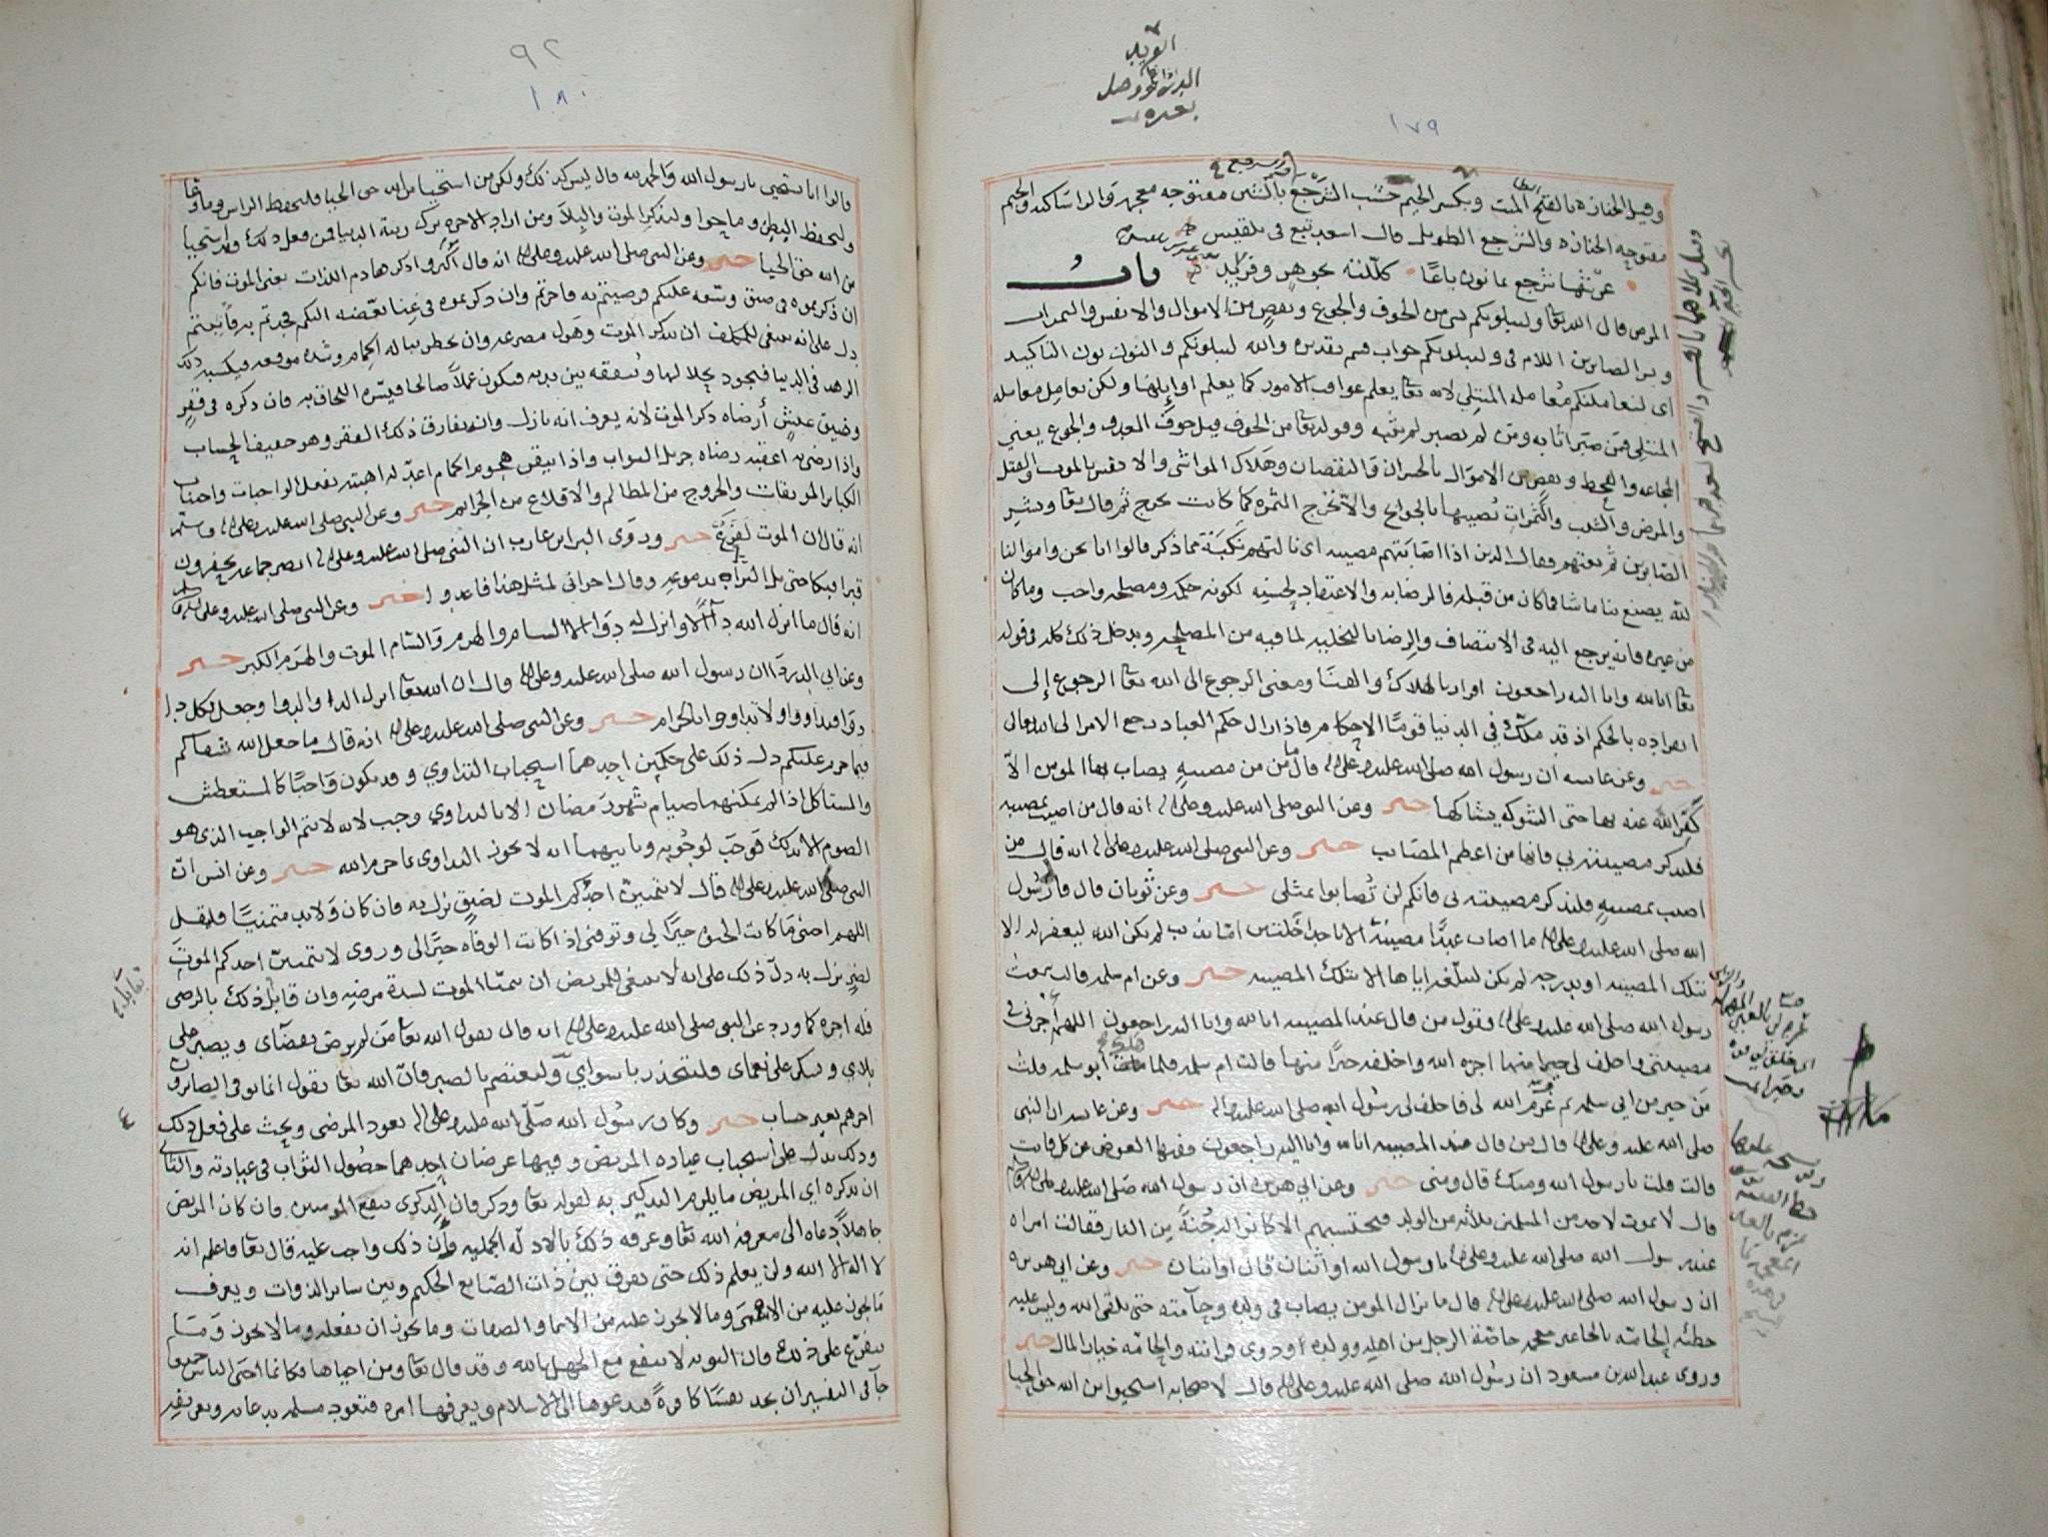 ١٧٩
وقيل الجنازه بالفتح الميت وبكسر الجيم خشب الشرجع بالشين مفتوحه معجمه والراساكنه والجيم
مفتوحه الجنازه والشرجع الطويل قال اسعد تبع في بلقيس
عرشها شرجع ثمانون باعا كللته بجوهر وفريد باب
المرض قال الله تعا ولنبلونكم بشي من الخوف والجوع ونقص من الاموال والانفس والثمرات
وبشر الصابرين اللام في ولنبلونكم جواب قسم تقديره والله لنبلونكم والنون نون التاكيد
اى لنعاملنكم معامله المبتلى لانه تعا يعلم عواقب الامور كما يعلم اوايلها ولكن يعامل معامله
المبتلى فمن صبر اثابه ومن لم يصبر لم يثبه وقوله تعا من الخوف قيل خوف العدو والجوع يعني
المجاعه والقحط ونقص من الاموال بالخسران والنقصان وهلاك المواشى والانفس بالموت والقتل
والمرض والشيب والثمرات تصيبها الجوايح والا تخرج الثمره كما كانت تخرج ثم قال تعا وبشر
الصابرين ثم نعتهم فقال الذين اذا اصابتهم مصيبه اى نالتهم نكبة مما ذكر قالوا انا نحن واموالنا
لله يصنع بنا ما شا فما كان من قبله فالرضا به والاعتقاد لحسنه لكونه حكمه ومصلحه واجب وما كان
من غيره فانه يرجع اليه في الانتصاف والرضا بالتخليه لما فيه من المصلحه ويدخل ذلك كله في قوله
تعا انا لله وانا اليه راجعون اقرار بالهلاك والفنا ومعنى الرجوع الى الله تعا الرجوع إلى
انفراده بالحكم اذ قد ملك في الدنيا قوما الاحكام فاذا زال حكم العباد رجع الامر الى الله تعالى
خبر وعن عائشه ان رسول الله صلى الله عليه وعلى اله قال ما من مصيبه يصاب بها المومن الا
كفر الله عنه بها حتى الشوكه يشاكها خبر وعن النبي صلى الله عليه وعلى اله انه قال من اصيب بمصيبه
فليذكر مصيبته بي فانها من اعظم المصائب خبر وعن النبي صلى الله عليه وعلى اله انه قال من
اصيب بمصيبه فليذكر مصيبته بي فانكم لن تصابوا بمثلى خبر وعن ثوبان قال قال رسول
الله صلى الله عليه وعلى اله ما اصاب عبدا مصيبة الا باحدا خلتين اما بذنب لم يكن الله ليغفر له الا
بتلك المصيبه او بدرجه لم يكن ليبلغه اياها الا بتلك المصيبه خبر وعن ام سلمه قالت سمعت
رسول الله صلى الله عليه وعلى اله يقول من قال عند المصيبه انا لله وانا اليه راجعون اللهم أجرنى في
مصيبتى واخلف لى خيرا منها اجره الله واخلفه خيرا منها قالت ام سلمه فلما أبو سلمه قلت
من خير من ابي سلمه ثم عزم الله لى فاخلف لى رسول الله صلى الله عليه وعلى اله خبر وعن عائشه ان النبى
صلى الله عليه وعلى اله قال من قال عند المصيبه انا لله وانا اليه راجعون ففيها العوض عن كل فائت
قالت قلت يا رسول الله ومنك قال ومنى خبر وعن ابي هريره ان رسول الله صلى الله عليه وعلى اله
قال لا يموت لاحد من المسلمين ثلاثه من الولد فيحتسبهم الا كانوا له جُنةً من النار فقالت امراه
عند رسول الله صلى الله عليه وعلى اله يا رسول الله او اثنان قال او اثنان خبر وعن ابي هريره
ان رسول الله صلى الله عليه وعلى اله قال ما يزال المومن يصاب فى ولده وحامته حتى يلقى الله وليس عليه
خطئه الحامه بالحا غير معجمه خاصة الرجل من اهله وولده أو ذوى قرابته والحامه خيار المال خبر
وروى عبد الله بن مسعود ان رسول الله صلى الله عليه وعلى اله قال لاصحابه استحيوا من الله حق الحيا
٩٢
١٨٠
قالوا انا نستحيى يا رسول الله والحمد لله قال ليس كذلك ولكن من استحيا من الله حق الحيا فليحفظ الراس وما وعا
وليحفظ البطن وما حوا وليذكر الموت والبلا ومن اراد الاخره ترك زينة الدنيا فمن فعل ذلك فقد استحيا
من الله حق الحيا خبر وعن النبي صلى الله عليه وعلى اله انه قال أكثروا ذكر هادم اللذات يعنى الموت فانكم
ان ذكرتموه فى ضيق وسعه عليكم فرضيتم به فاجرتم وان ذكرتموه فى غنا بغضه اليكم فجدتم به فأثبتم
دل على انه ينبغى للمكلف ان يذكر الموت وهول مصرعه وان يخطر بباله الحمام وشدة موقعه فيكسبه ذلك
الزهد فى الدنيا فيجود بحلالها وينفقه بين يديه فيكون عملا صالحا فيسره اللحاق به فان ذكره في فقر
وضيق عيش أرضاه ذكر الموت لانه يعرف انه نازل وانه يفارق ذلك الفقر وهو خفيف الحساب
واذا رضى به اعقبه رضاه جزيل الثواب واذا تيقن هجوم الحمام اعد له اهبته بفعل الواجبات واجتناب
الكبائر الموبقات والخروج من المظالم والاقلاع من الجرائم خبر وعن النبي صلى الله عليه وعلى اله وسلم
انه قال ان الموت لفزع خبر وروى البرا بن عازب ان النبي صلى الله عليه وعلى اله ابصر جماعه يحفرون
قبرا فبكا حتى بل التراب بدموعه وقال اخواني لمثل هذا فاعدوا خبر وعن النبي صلى الله عليه وعلى اله
انه قال ما انزل الله دآالا وانزل له دوا الا السام والهرم والسام الموت والهرم الكبر خبر
وعن ابي الدردا ان رسول الله صلى الله عليه وعلى اله قال ان الله تعا انزل الدا والدوا وجعل لكل دا
دوا فتداووا ولا تداووا بالحرام خبر وعن النبي صلى الله عليه وعلى اله انه قال ما جعل الله شفاكم
فيما حرم عليكم دل ذلك على حكمين احدهما استحباب التداوي وقد يكون واجبا كالمستعطش
والمستاكل اذا لم يمكنهما صيام شهر رمضان الا بالتداوي وجب لانه لا يتم الواجب الذى هو
الصوم الا بذلك فوجب لوجوبه وثانيهما انه لا يجوز التداوى بما حرم الله خبر وعن انس ان
النبي صلى الله عليه وعلى اله قال لا يتمنين احدكم الموت لضيق نزل به فان كان ولا بد متمنيا فليقل
اللهم احيني ما كانت الحيوه خيرا لى وتوفني اذا كانت الوفاه خيرا لى وروى لا يتمنين احدكم الموت
لضر نزل به دل ذلك على انه لا ينبغى للمريض ان يتمنا الموت لشدة مرضه وان قابل ذلك بالرضى
فله اجره كما ورد عن النبي صلى الله عليه وعلى اله انه قال يقول الله تعا من لم يرض بقضآى ويصبر على
بلاى ويشكر على نعماى فليتخذ ربا سوايى وليعتصم بالصبر فان الله تعا يقول انما يوفى الصابرون
اجرهم بغير حساب خبر وكان رسول الله صلى الله عليه وعلى اله يعود المرضى ويحث على فعل ذلك
وذلك يدل على استحباب عياده المريض وفيها غرضان احدهما حصول الثواب في عيادته والثاني
ان يذكره اي المريض ما يلزم التذكير به لقوله تعا وذكر فان الذكرى تنفع المومنين فان كان المريض
جاهلا دعاه الى معرفة الله تعا وعرفه ذلك بالادلة الجملية وأن ذلك واجب عليه قال تعا فاعلم انه
لا اله الا الله ولن يعلم ذلك حتى يفرق بين ذات الصانع الحكيم وبين ساير الذوات ويعرف
ما يجوز عليه من الاسما وما لا يجوز عليه من الاسما والصفات وما يجوز ان يفعله وما لا يجوز
يتفرع على ذلك فان التوبه لا تنفع مع الجهل بالله وقد قال تعا ومن احياها فكانما احيى الناس جميعا
جآ فى التفسير ان يجد نفسا كافرةً فيدعوها الى الاسلام ويعرفها امره فتعود مسلمه بدعائه وتعريفه